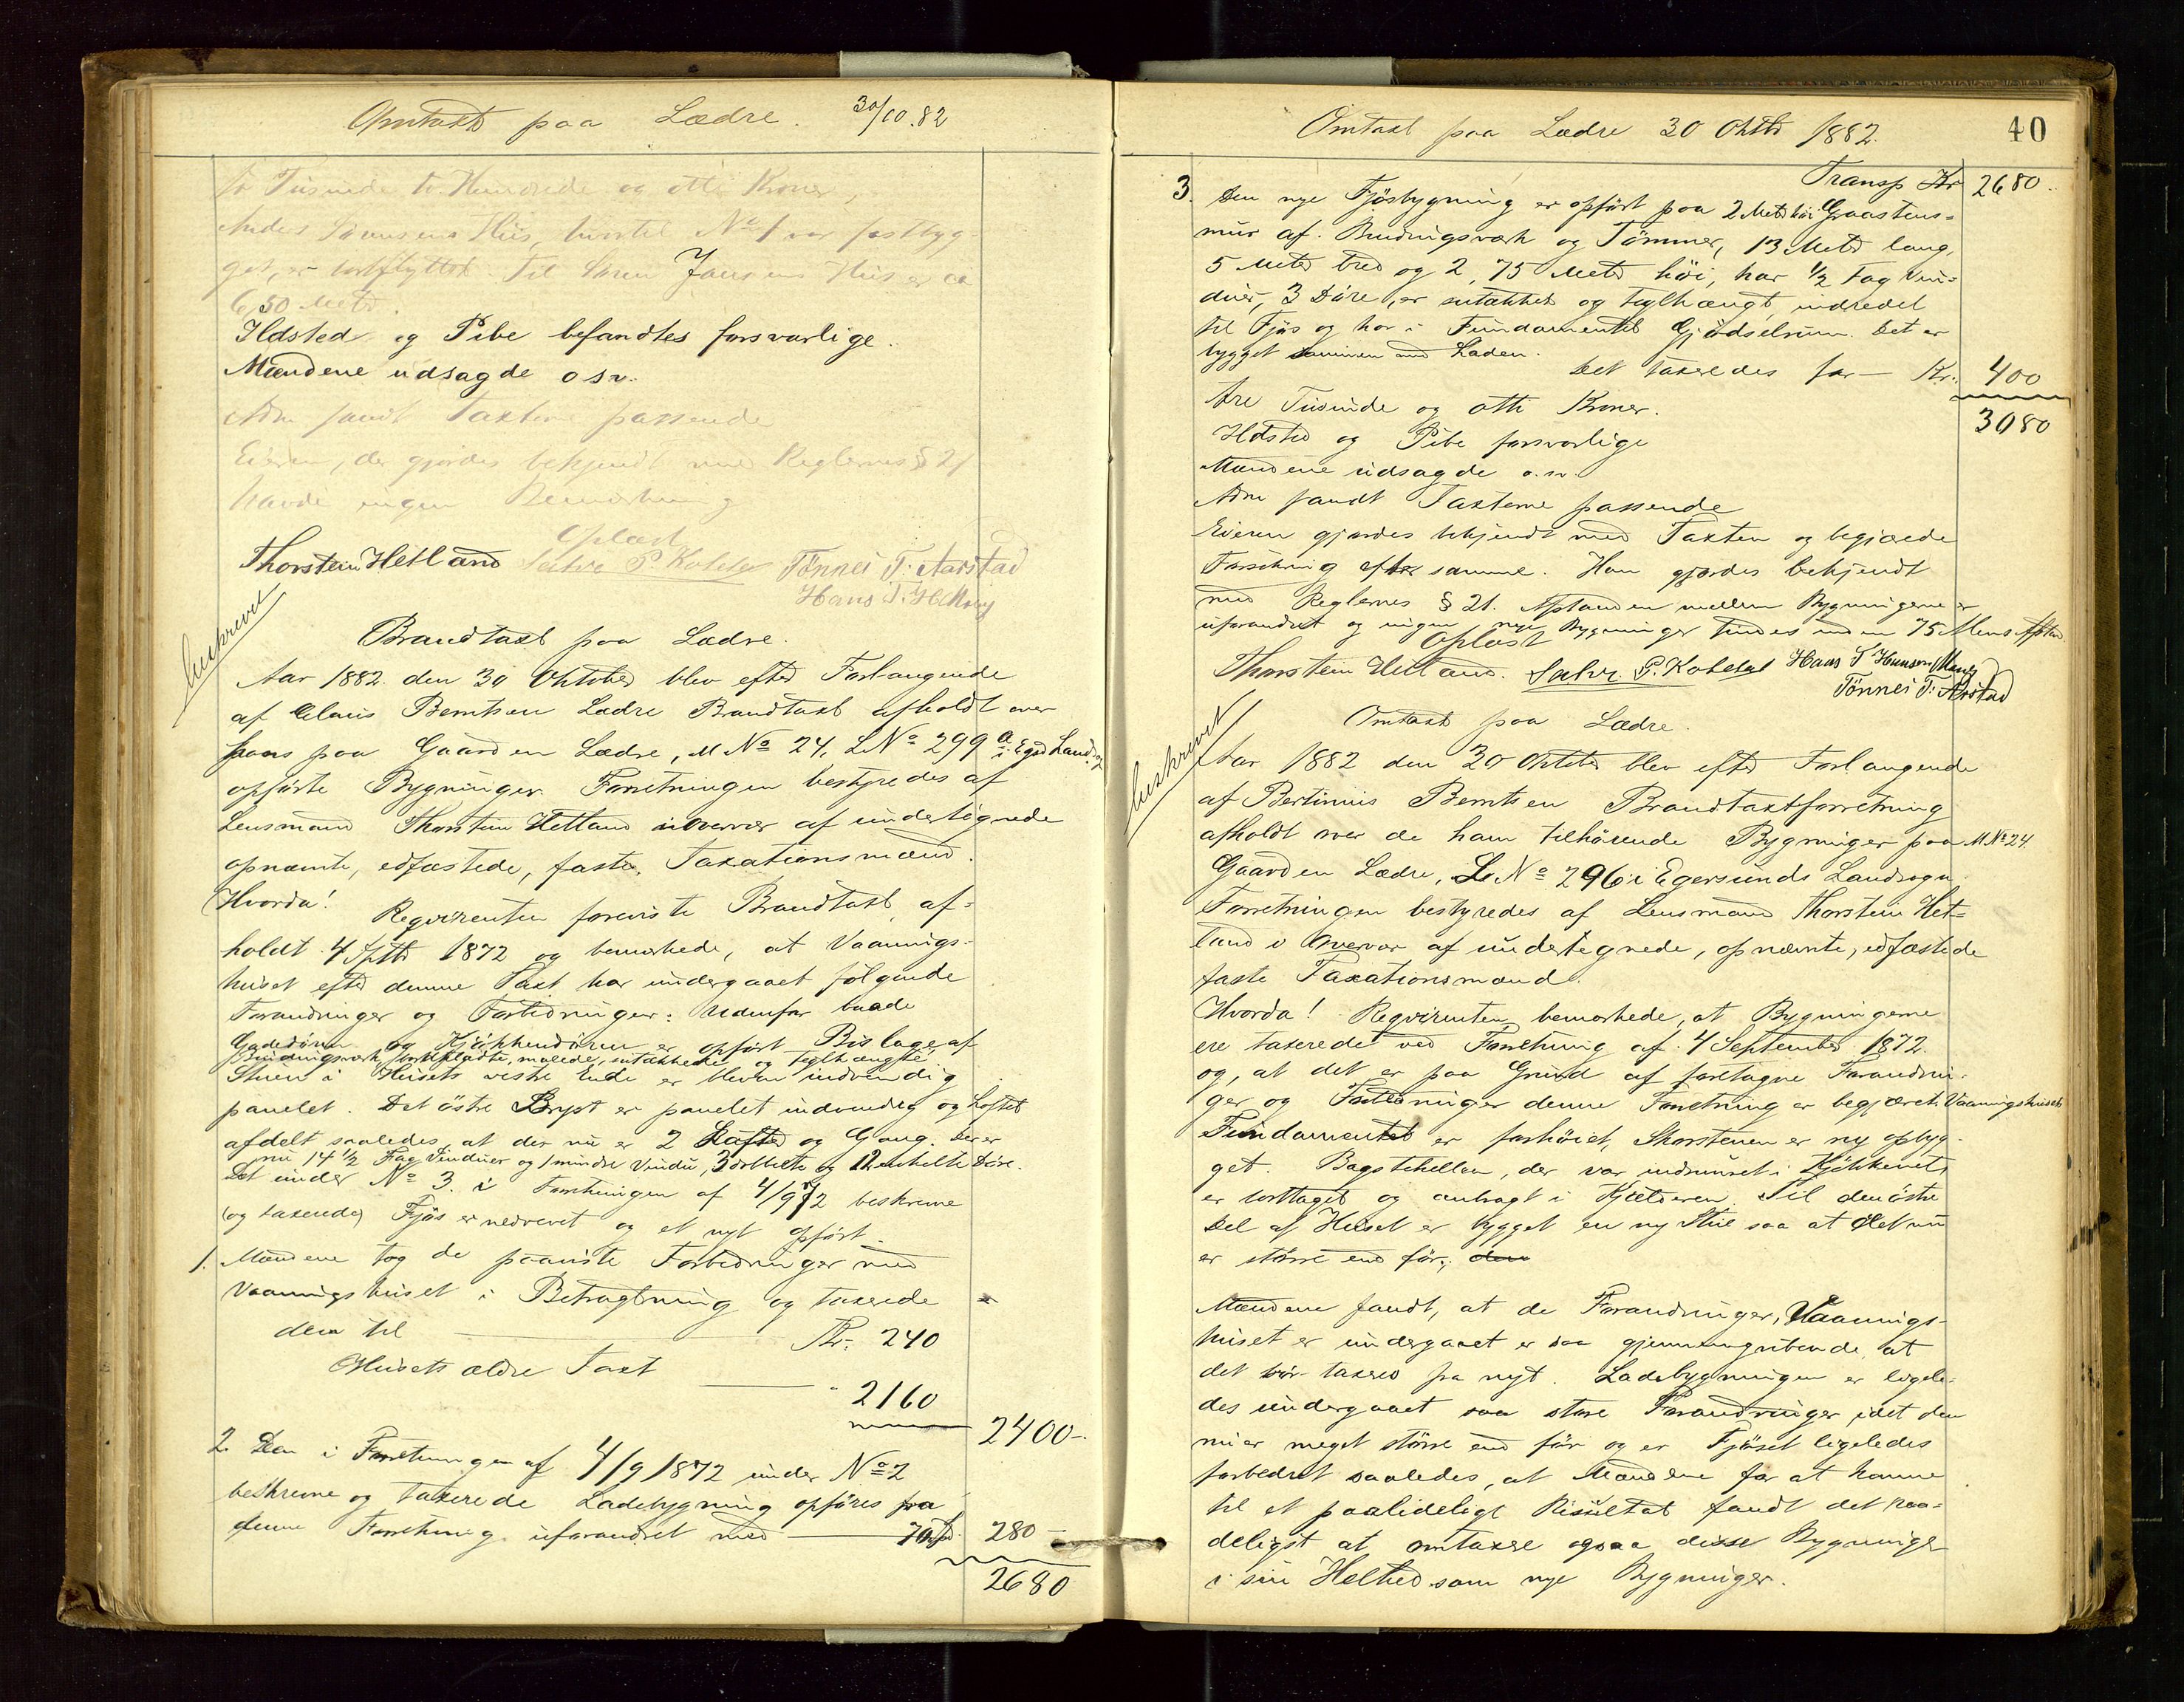 Omtaxt paa Lædre. 30/10.82
to Tusinde to Hundrede og otti Kroner,
Anders Hiis, hvortil No 1 var fastbyg-
get, er bortflyttet. Til Søren Jansens Hus er ca
6,50 Meter.
Ildsted og Pibe befandtes forsvarlige.
Mændene udsagde osv.
Adm fandt Taxten passende
Eieren, der gjordes bekjendt med Reglernes § 21
havde ingen Bemærkning
Oplæst
Thorstein Hetland P. Koldal Tönnes T. Aarstad
Hans T.
Beskrevet
Brandtaxt paa Lædre.
Aar 1882 den 30 Oktober blev efter Forlangende
af Claus Berntsen Lædre Brandtaxt afholdt over
hans paa Gaarden Lædre, M No 24, L No 299 a i Eg. Landsogn
opførte Bygninger. Forretningen bestyredes af
Lensmand Thorstein Hetland i Overvær af undertegnede
opnævnte, edfæstede, faste, Taxationsmænd.
Hvorda! Reqvirenten foreviste Brandtaxt, af-
holdt 4 Septb 1872 og bemærkede, at Vaanings-
huset efter denne Taxt har undergaaet følgende
Forandringer og Forbedringer: Udenfor baade
Gadedøren og Kjøkkendøren er opført Bislage af
Bindingsværk, bordklædte, malede, sutækkede og teglhængte.
Stuen i Husets vestre Ende er bleven indvendig
panelet. Det östre er panelet indvendig og Loftet
afdelt saaledes, at der nu er 2 Lofter og Gang. Der er
nu 14 1/2 Fag Vinduer og 1 mindre Vindu, 3 dobbelte og 12 enkelte Døre.
Det under No 3 i Forretningen af 4/9 72 beskrevne
(og taxerede) Fjös er nedrevet og et nyt opført.
1. Mændene tog de paaviste Forbedringer med
Vaaningshuset i Betragtning og taxerede
dem til Kr. 240
Husets ældre Taxt " 2160
2400-
2. Den i Forretningen af 4/9 1872 under No 2
beskrevne og taxerede Ladebygning opføres fra
denne Forretning uforandret med 280-
2680
Omtaxt paa Lædre 30 Oktbr 1882. 40
Transp Kr 2680.
3. Den nye Fjösbygning er opfört paa 2 Meter höi Graastens-
mur af Bindingsværk og Tömmer, 13 Meter lang,
5 Meter bred og 2,75 Meter höi, har 1/2 Fag Vin-
duer, 3 Döre, er sutækket og teglhængt, indredet
til Fjös og har i Fundamentet Gjödselrum. Det er
bygget sammen med Laden.
Det taxeredes for — Kr. 400
tre Tusinde og otti Kroner. 3080
Ildsted og Pibe forsvarlige
Mændene udsagde o.s.v.
Adm fandt Taxterne passende
Eieren gjordes bekjendt med Taxten og begjærede
Forsikring efter samme. Han gjordes bekjendt
med Reglernes § 21. Afstanden mellem Bygningerne er
uforandret og ingen nye Bygninger findes inden 75 Alens Afstand
Oplæst
Thorstein Hetland. P. Koldal Hans T Hansen
Tönnes T. Aarstad
Beskrevet
Omtaxt paa Lædre.
Aar 1882 den 30 Oktober blev efter Forlangende
af Bertinius Berntsen Brandtaxtforretning
afholdt over de ham tilhörende Bygninger paa M No 24.
Gaarden Lædre, L No 296 i Egersunds Landsogn.
Forretningen bestyredes af Lensmand Thorstein Het-
land i Overvær af undertegnede, opnævnte, edfæstede
faste Taxationsmænd.
Hvorda! Reqvirenten bemærkede, at Bygningerne
ere taxerede ved Forretning af 4 September 1872
og, at det er paa Grund af foretagne Forandrin-
ger og Forbedringer denne Forretning er begjæret. Vaaningshusets
Fundament er forhöiet, Skorstenen er ny opbyg-
get. Bagstehellen, der var indmuret i Kjökkenet,
er borttaget og anbragt i Kjælderen. Til den östre
Del af Huset er bygget en ny Stue saa at det nu
er större end för, den
Mændene fandt, at de Forandringer, Vaanings-
huset er undergaaet er saa gjennemgribende, at
det bör taxeres fra nyt. Ladebygningen er ligele-
des undergaaet saa store Forandringer idet den
nu er meget större end för og er Fjöset ligeledes
forbedret saaledes, at Mændene for at komme
til et paalideligt Resultat fandt det raa-
deligst at omtaxere ogsaa disse Bygninger
i sin Helhed som nye Bygninger.